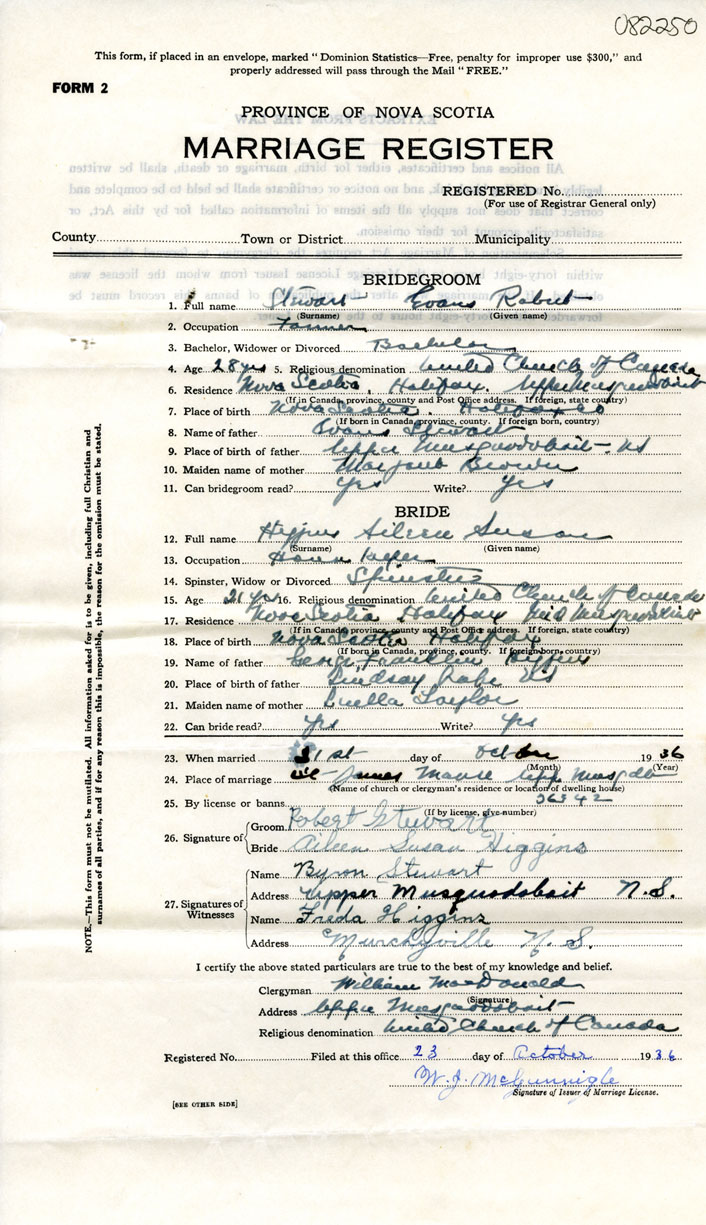 082250
This form, if placed in an envelope, marked "Dominion Statistics—Free, penalty for improper use $300," and
properly addressed will pass through the Mail "FREE."
FORM 2
PROVINCE OF NOVA SCOTIA
MARRIAGE REGISTER
REGISTERED No.
(For use of Registrar General only)
County Town or District Municipality
BRIDEGROOM
1. Full name Stewart Evans Robert
(Surname) (Given name)
2. Occupation Farmer
3. Bachelor, Widower or Divorced Bachelor
4. Age 28 yrs 5. Religious denomination United Church of Canada
6. Residence Nova Scotia, Halifax, Upper Musquodoboit
(If in Canada, province, county and Post Office address. If foreign, state country)
7. Place of birth Nova Scotia. Halifax Co
(If born in Canada, province, county. If foreign born, country)
8. Name of father Evans Stewart
9. Place of birth of father Upper Musquodoboit NS
10. Maiden name of mother Margaret Brown
11. Can bridegroom read? Yes Write? Yes
BRIDE
12. Full name Higgins Aileen Susan
(Surname) (Given name)
13. Occupation House keeper
14. Spinster, Widow or Divorced Spinster
15. Age 21 yrs 16. Religious denomination United Church of Canada
17. Residence Nova Scotia Halifax Mid Musquodoboit
(If in Canada, province, county and Post Office address. If foreign, state country)
18. Place of birth Nova Scotia Halifax
(If born in Canada, province, county. If foreign born, country)
19. Name of father George Franklin Higgins
20. Place of birth of father Lindsay Lake NS
21. Maiden name of mother Luella Taylor
22. Can bride read? Yes Write? Yes
23. When married 21st day of October 1936
(Month) (Year)
24. Place of marriage St James Manse Upp Musqdbt
(Name of church or clergyman's residence or location of dwelling house)
25. By license or banns 36342
(If by license, give number)
26. Signature of Groom Robert Stewart
Bride Aileen Susan Higgins
27. Signatures of Witnesses
Name Byron Stewart
Address Upper Musquodoboit N.S.
Name Freda Higgins
Address Murchyville N.S.
I certify the above stated particulars are true to the best of my knowledge and belief.
Clergyman William MacDonald
(Signature)
Address Upper Musquodoboit
Religious denomination United Church of Canada
Registered No. Filed at this office 23 day of October 1936
W. J. McGunnigle
Signature of Issuer of Marriage License.
[SEE OTHER SIDE]
NOTE.—This form must not be mutilated. All information asked for is to be given, including full Christian and
surnames of all parties, and if for any reason this is impossible, the reason for the omission must be stated.